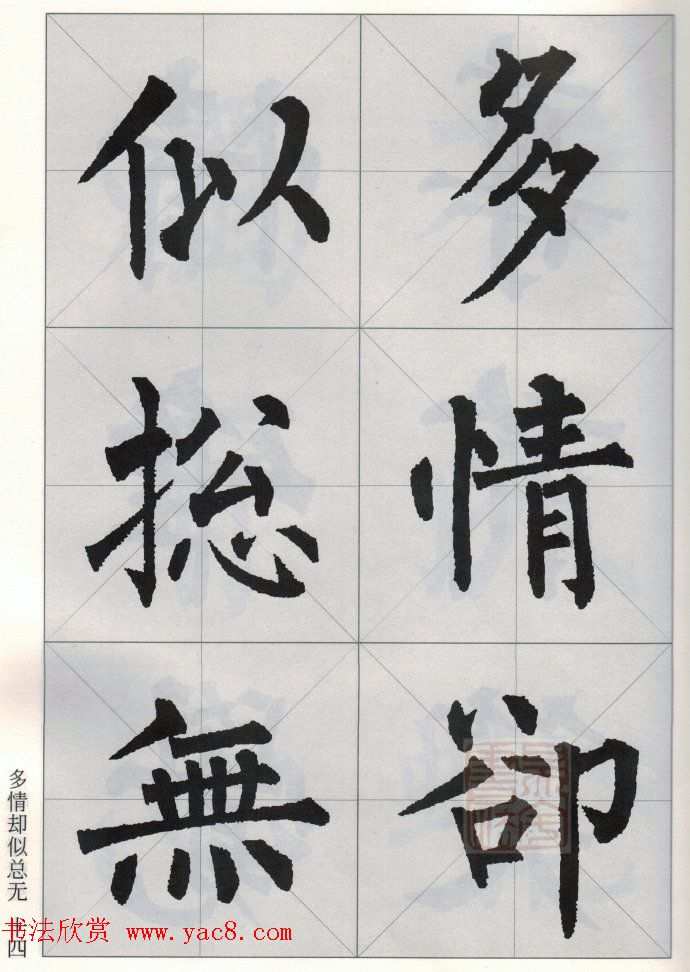 多情卻
似捴無
多情却似总无 廿四
书法欣赏 www.yac8.com